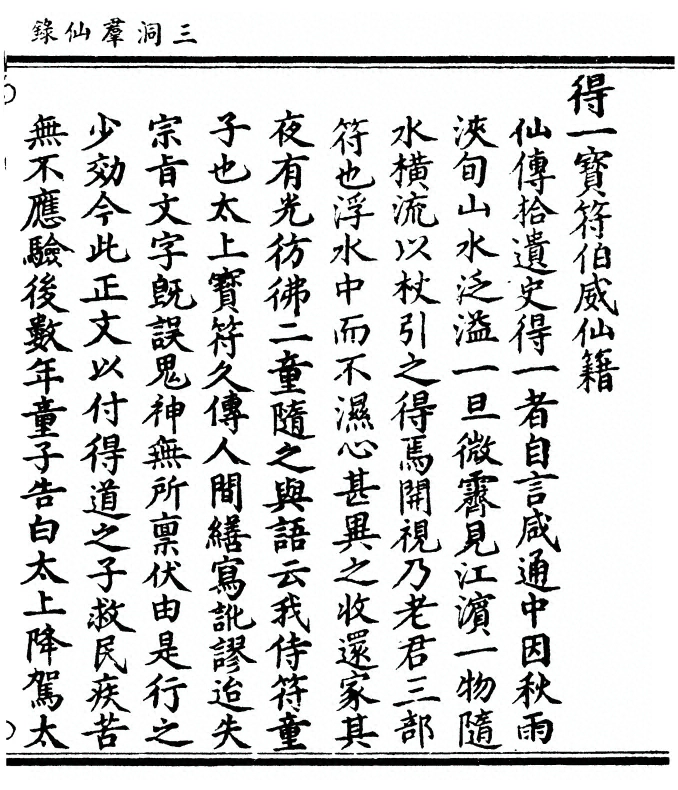 三洞羣仙錄
得一寶符伯威仙籍
仙傳拾遺史得一者自言咸通中因秋雨
浹旬山水泛溢一旦微霽見江濵一物隨
水橫流以杖引之得焉開視乃老君三部
符也浮水中而不濕心甚異之收還家其
夜有光彷彿二童隨之與語云我侍符童
子也太上寶符久傳人間繕寫訛謬迨失
宗旨文字旣誤鬼神無所禀伏由是行之
少効今此正文以付得道之子救民疾苦
無不應驗後數年童子告白太上降駕太